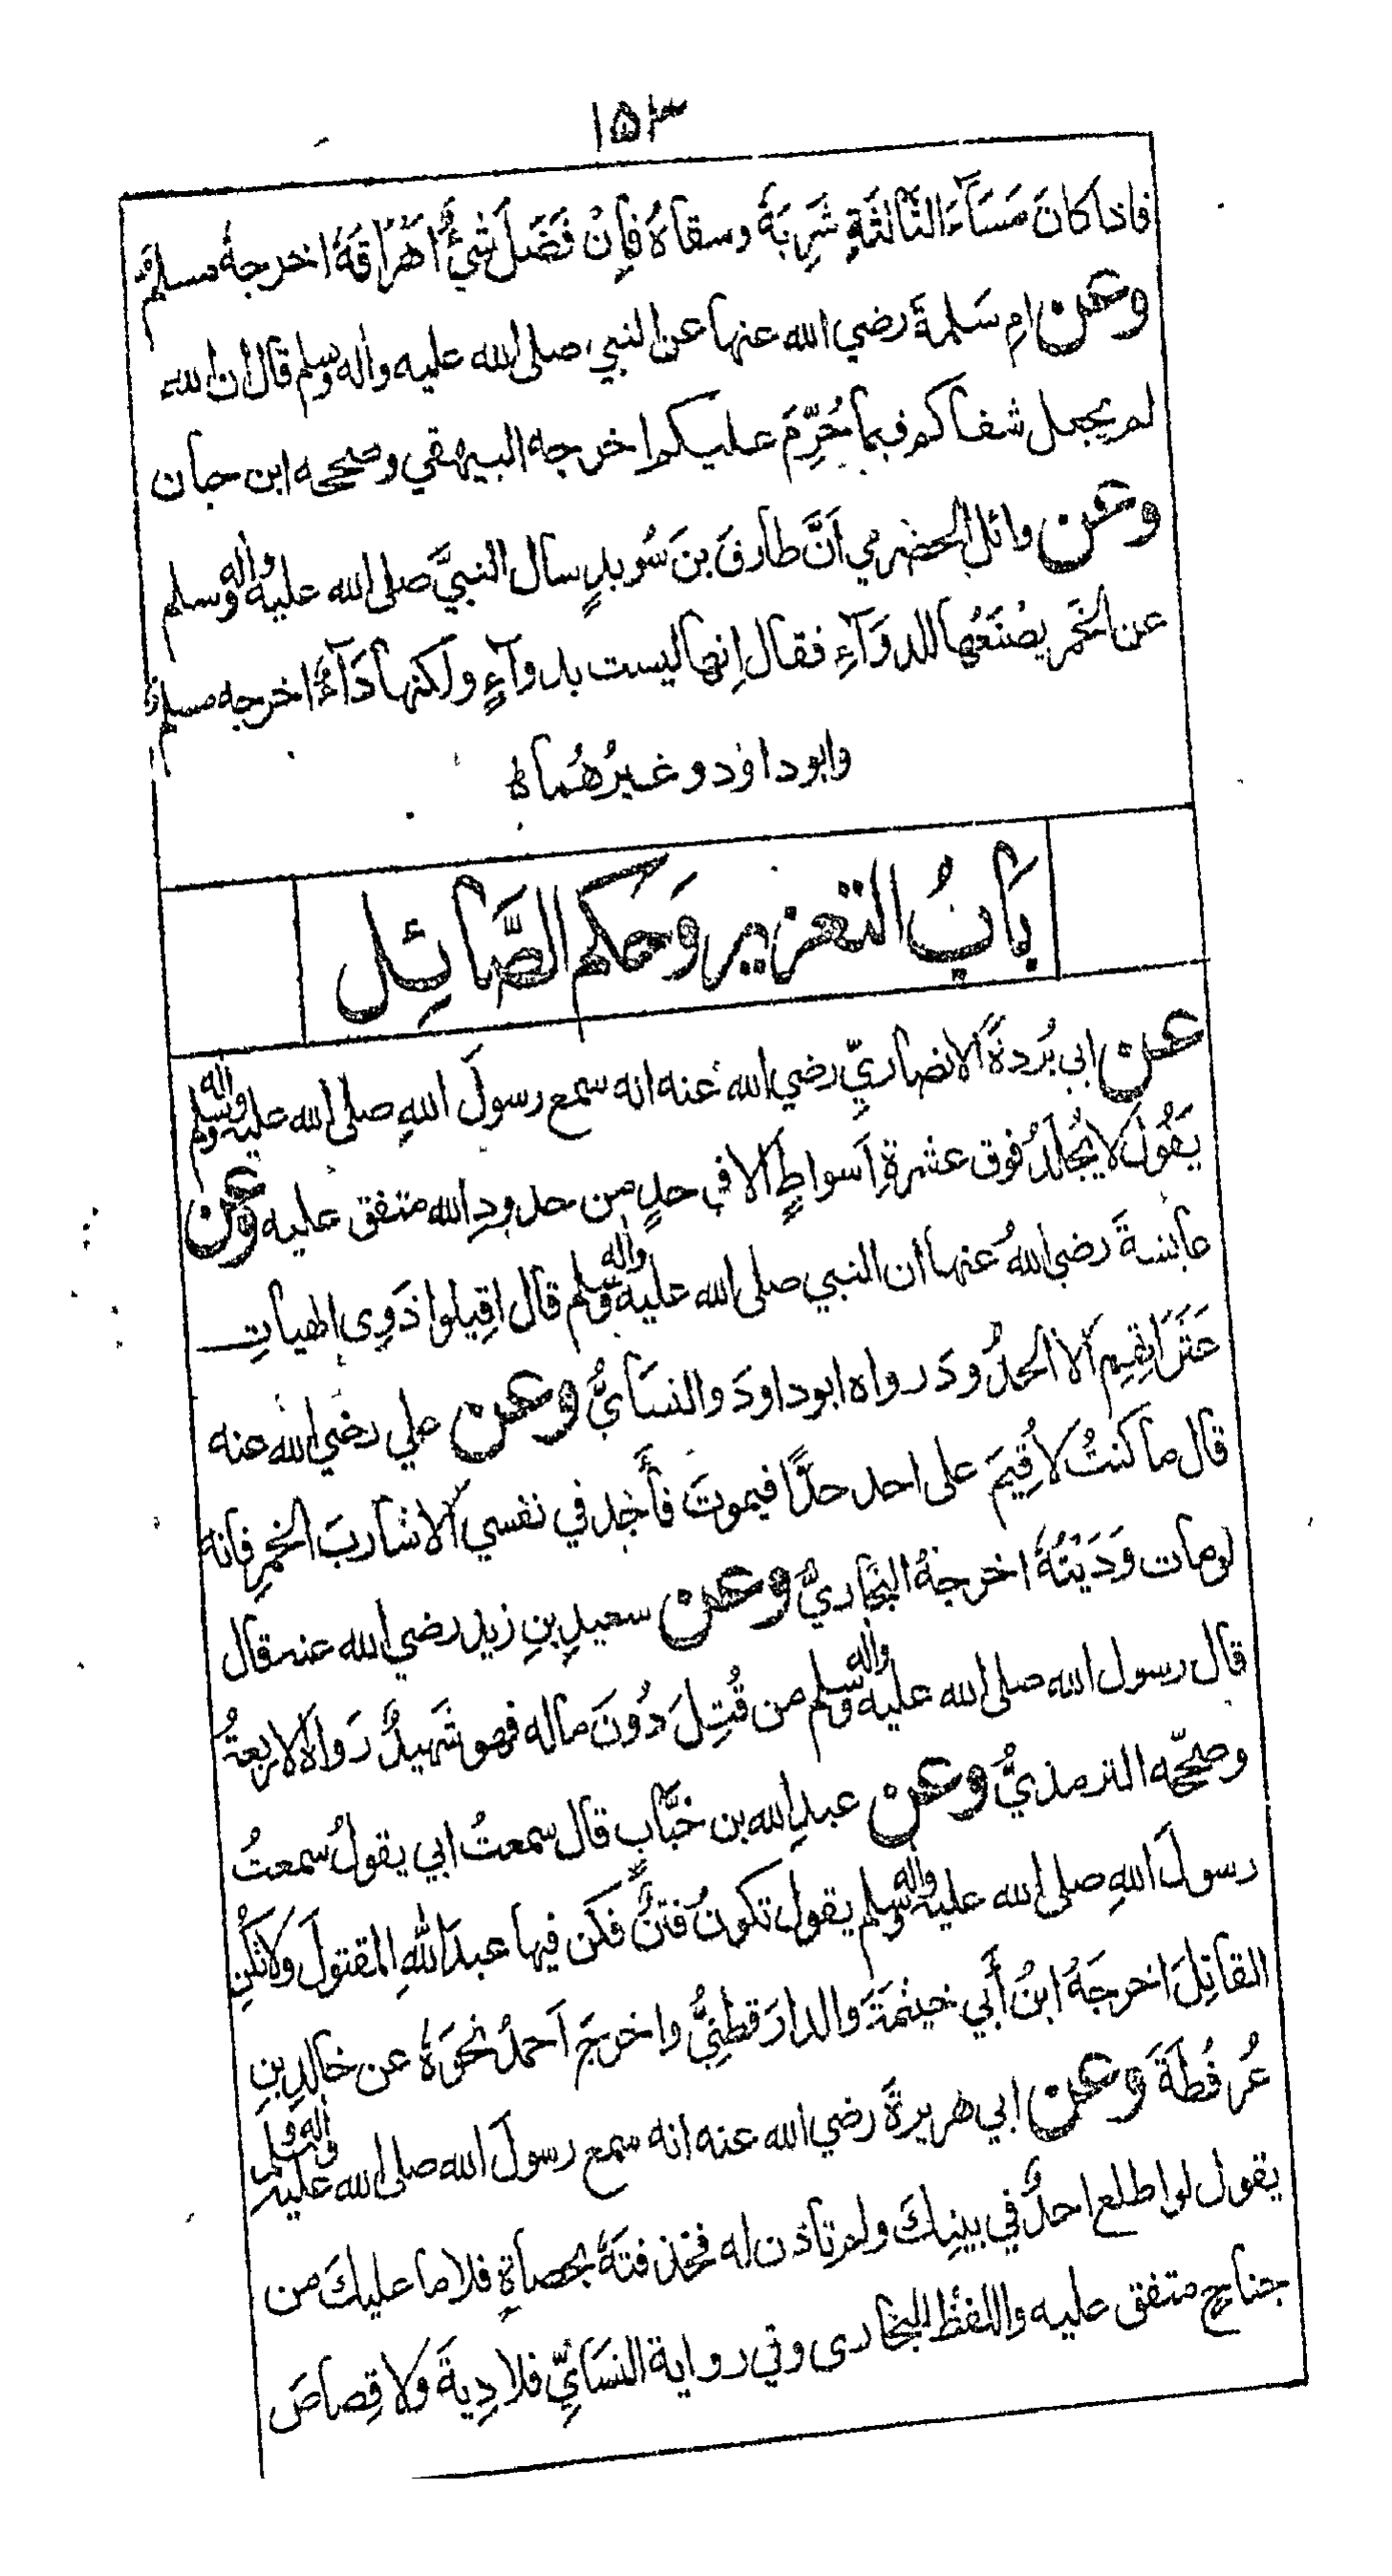 ١٥٣
فاذا كانَ مَسَآءَ الثّالثَةِ شَرِبَهٗ وسقاهُ فاِنْ فَضَلَ شَيْءٌ اَهْرَاقَهٗ اخرجهٗ مسلمٌ
وعن امِ سَلمةَ رضي الله عنها عن النبي صلى الله عليه واٰله وسلم قال ان الله
لم يجعل شفاكم فيما حُرِّمَ عليكم اخرجه البيهقي وصححه ابن حبان
وعن وائل الحضرمي اَنَّ طارقَ بنَ سُويدٍ سال النبيَّ صلى الله عليه واٰله وسلم
عن الخَمر يصْنَعُها للدوَآءِ فقال اِنها ليست بدوآءٍ ولكنها دَآءٌ اخرجه مسلمٌ
وابو داؤد وغيرُهُما ه
بَابُ التعزير وَحكم الصَّائِل
عن ابي بُردةَ الانصاريِّ رضي الله عنه انه سمع رسولَ اللهِ صلى الله عليه واٰله وسلم
يَقُولُ لا يُجلَدُ فوق عشرةِ اَسواطٍ الا في حدٍ من حدودِ الله متفق عليه وعن
عايشةَ رضي اللهُ عنها ان النبي صلى الله عليه واٰله وسلم قال اقِيلوا ذَوِى الهيأتِ
عَثَرَاتِهِم الا الحدُودَ رواه ابو داودَ والنسَايُّ وعن علي رضي الله عنه
قال ما كنتُ لاُقِيمَ على احد حدًّا فيموتَ فأَجد في نفسي الا شاربَ الخمرِ فانه
لو مات وَدَيْتُهٗ اخرجهُ البخاريُّ وعن سعيدِ بنِ زيد رضي الله عنه قال
قال رسول الله صلى الله عليه واٰله وسلم من قُتِلَ دُونَ ماله فهو شَهيدٌ رَواهُ الاربعةُ
وصحّحه الترمذيُّ وعن عبدِ الله بن خبَّابٍ قال سمعتُ ابي يقولُ سمعتُ
رسولَ اللهِ صلى الله عليه واٰله وسلم يقول تكونُ فتنٌ فكن فيها عبدَ اللهِ المقتولَ وَلَا تَكُنِ
القاتِلَ اخرجَهُ ابنُ أَبي خيثمَةَ والدارَ قطنِيُّ واخرجَ اَحمدُ نحوَهٗ عن خالدِ بنِ
عُرفُطَةَ وعن ابي هريرةَ رضي الله عنه انه سمع رسولَ الله صلى الله عليه واٰله وسلم
يقول لو اطلع احدٌ في بيتِكَ ولم تاذن له فخذفتَهٗ بحصاةٍ فلا ما عليكَ من
جناحٍ متفق عليه واللفظ للبخارى وفي رواية النسَائِيِّ فلا دِيةَ وَلا قِصاصَ